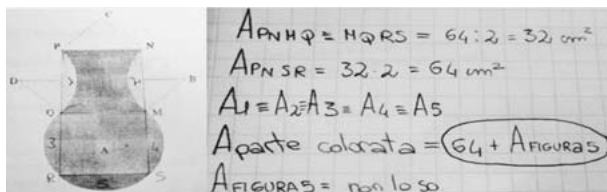 C
P N
D 2 B
Q M
3 A 4
R S
5
A PNMQ ≡ MQRS = 64 : 2 = 32 cm²
A PNSR = 32 · 2 = 64 cm²
A1 ≡ A2 ≡ A3 ≡ A4 ≡ A5
A parte colorata = 64 + A FIGURA 5
A FIGURA 5 = non lo so